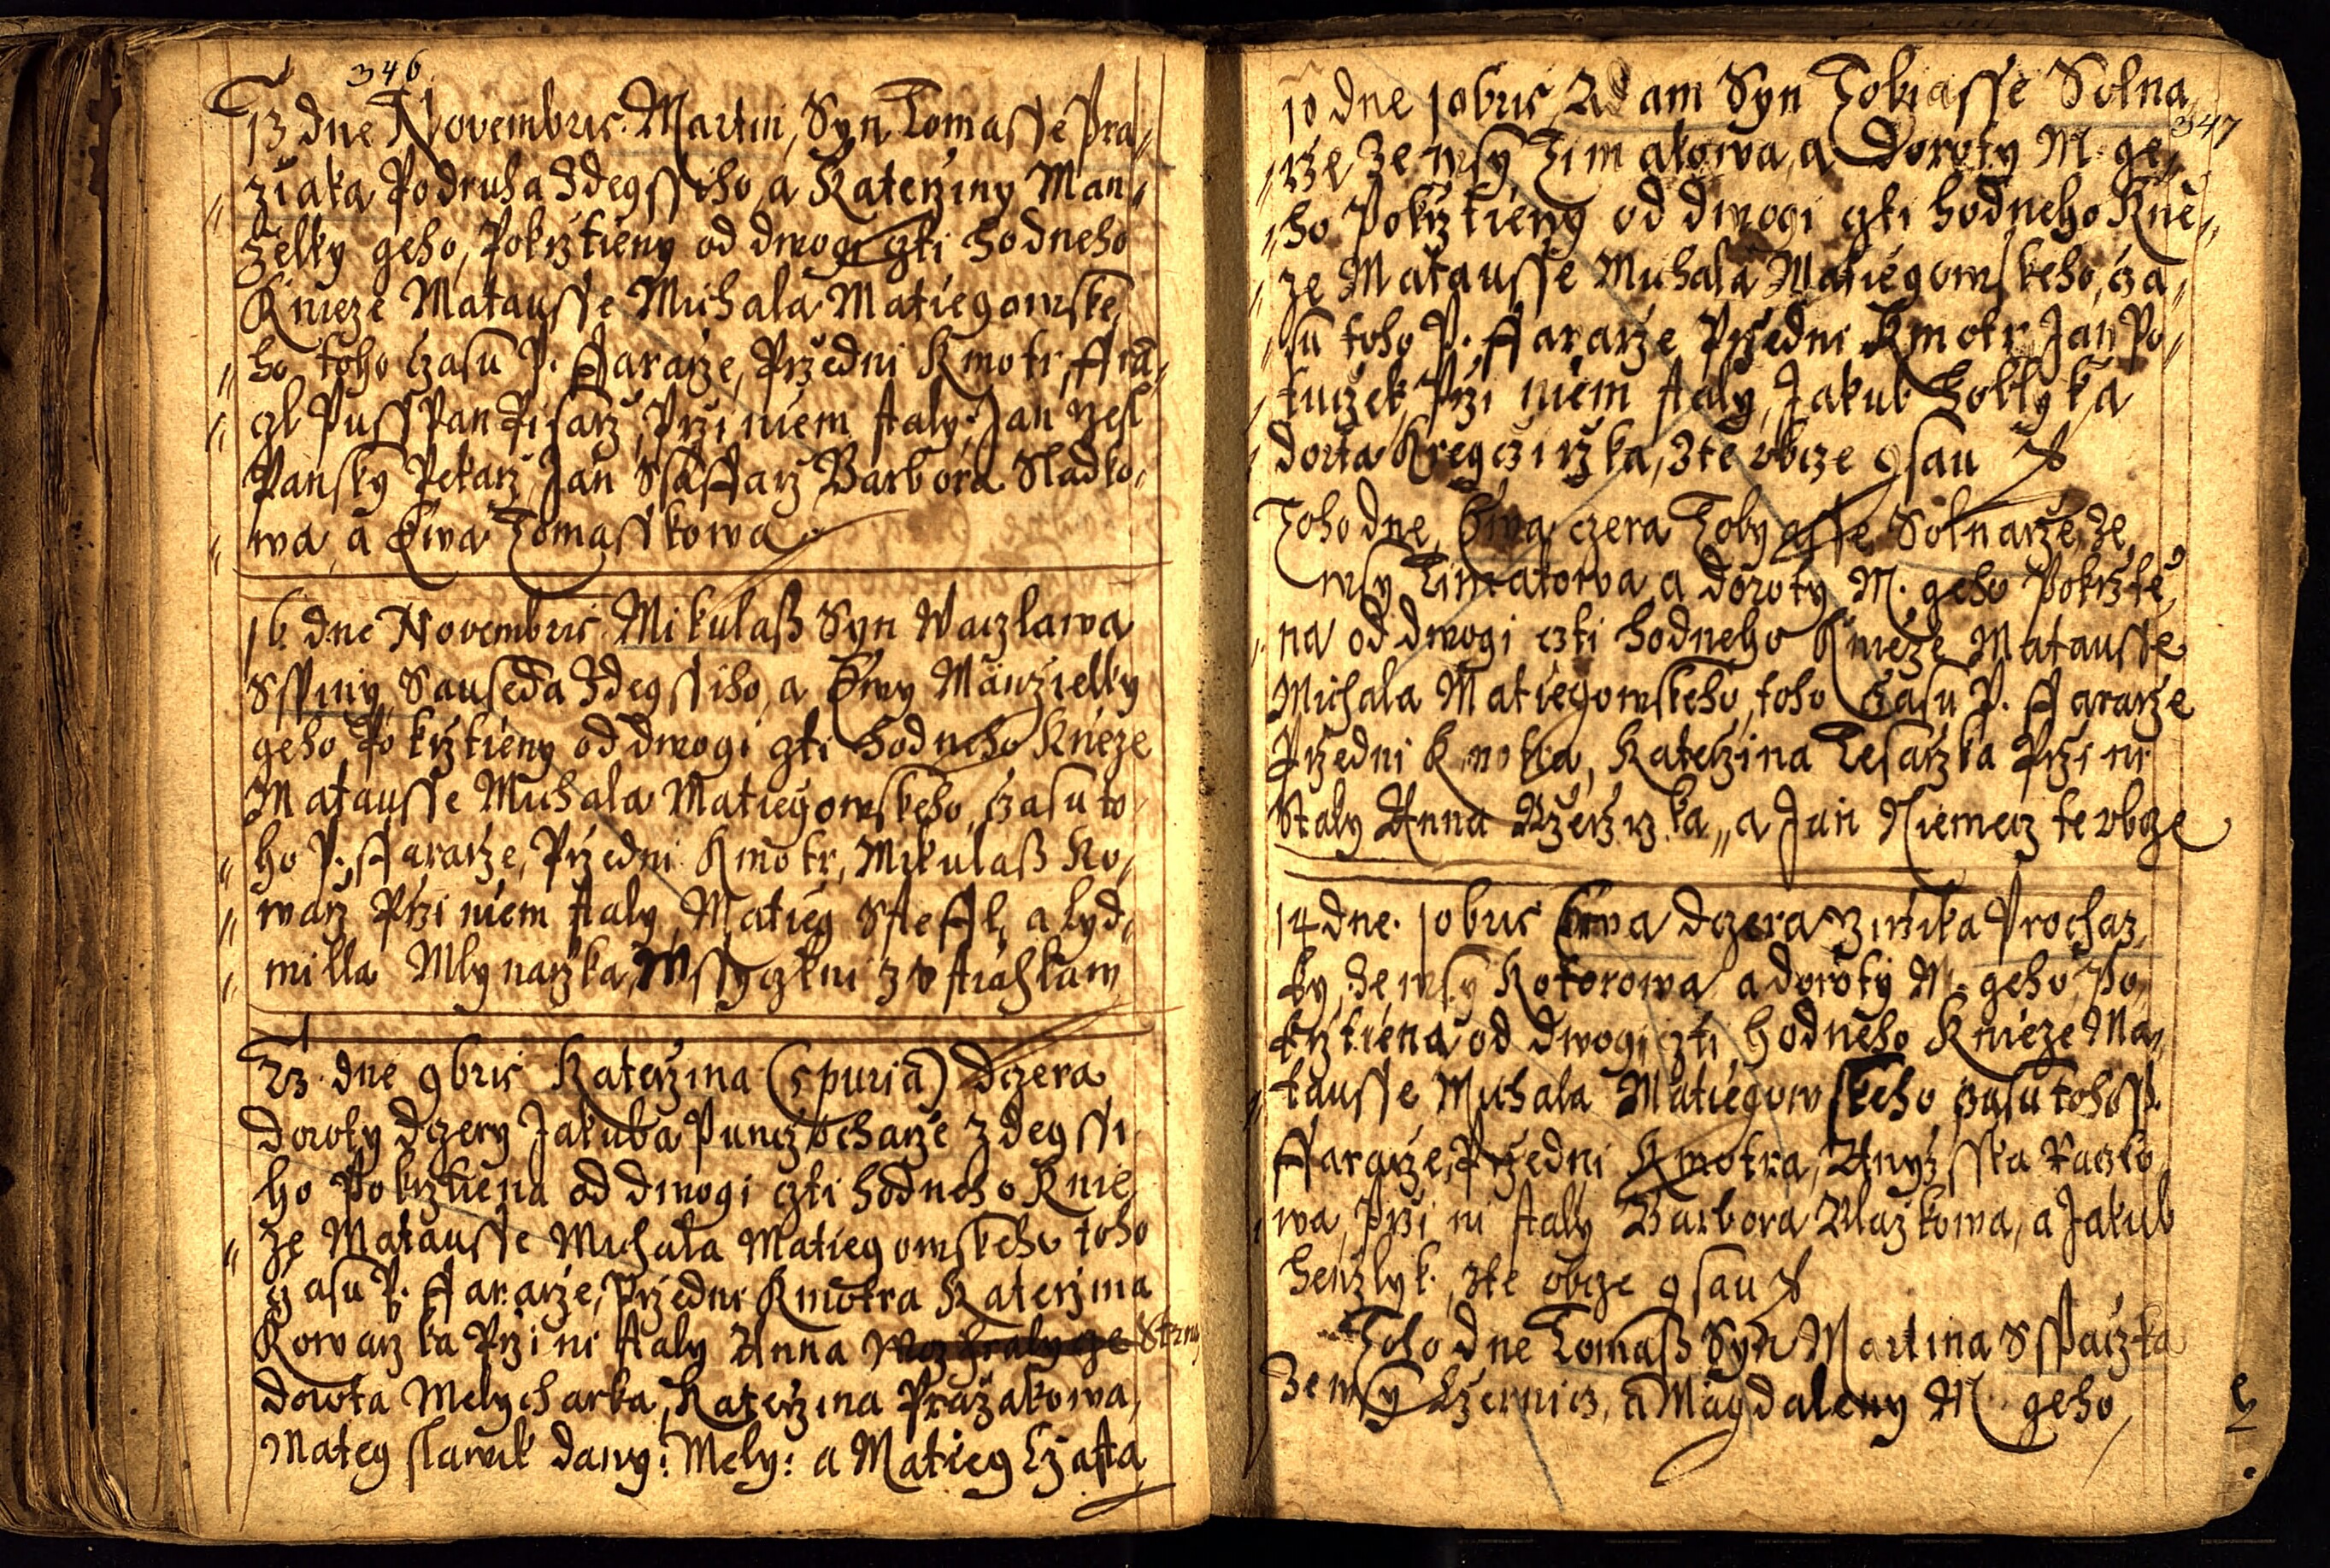 346
13 dne Novembris Martin, Syn Tomasse Pra„
„ziaka Podruha Zdegssiho, a Katerziny Man„
zelky geho, Pokrztieny od dwogi czti hodneho
Knieze Matausse Michala Matiegowske„
„ho toho czasu P. Fararze, Przedni Kmotr, Fran„
„czl Puss Pan Pisarz, Przi niem staly: Jan
Pansky Pekarz, Jan Ssaffarz Barbora Sladko„
„wa, a Ewa Tomasskowa
16. dne Novembris Mikulaß Syn Waczlawa
Sspiny, Sauseda Zdegssiho, a Ewy Manzielky
geho Pokrztieny od dwogi czti hodneho Knieze
Matausse Michala Matiegowskeho, czasu to„
„ho P. Fararze, Przedni Kmotr, Mikulaß Ko„
„warz Przi niem staly, Matieg Steffl, a Lyd„
„milla Mlynarzka, Wssyczkni z
23. dne 9bris Katerzina (spuria) dczera
Doroty dczery Jakuba Punczocharze zdegssi„
ho Pokrztiena od dwogi czti hodneho Knie„
„ze Matausse Michala Matiegowskeho toho
czasu P. Fararze, Przedni Kmotra Katerzina
Kowarzka Przi ni staly Anna
Dorota Melycharka, Katerzina Prazakowa,
Mateg slawik dawy: Mely: a Matieg Czasta
347
10 dne 10bris Adam Syn Tobiasse Solna„
„rze, ze wsy Zimakowa, a Doroty M. ge„
„ho Pokrztieny od dwogi czti hodneho Knie„
„ze Matausse Michala Matiegowskeho, cza„
„su toho P. Fararze Przedni Kmotr Jan Po„
„tuczek, Przi niem staly, Jakub Holyka
Dorta Kregczirzka, Zte obcze gsau
Toho dne, Ewa czera Tobyasse Solnarze, ze
wsy Timakowa a Doroty M. geho Pokrztie„
„na od dwogi czti hodneho Knieze Matausse
Michala Matiegowskeho, toho czasu P. Fararze
Przedni Kmotra, Katerzina Tesarzka Przi ni
Staly Anna a Jan Niemecz te obcze
14 dne. 10bris Ewa dczera Prochaz„
ky, ze wsy Kotorowa a Doroty M. geho, Po„
krztiena od dwogi czti hodneho Knieze Ma„
„tausse Michala Matiegowskeho czasu toho P.
Fararze, Przedni Kmotra, Anyzsska Raczko„
„wa, Przi ni staly Barbora Blazkowa, a Jakub
Henzlyk. zte obcze gsau
Toho dne Tomaß Syn Martina Sspaczka
Ze wsy Czernicz, a Magdaleny M. geho